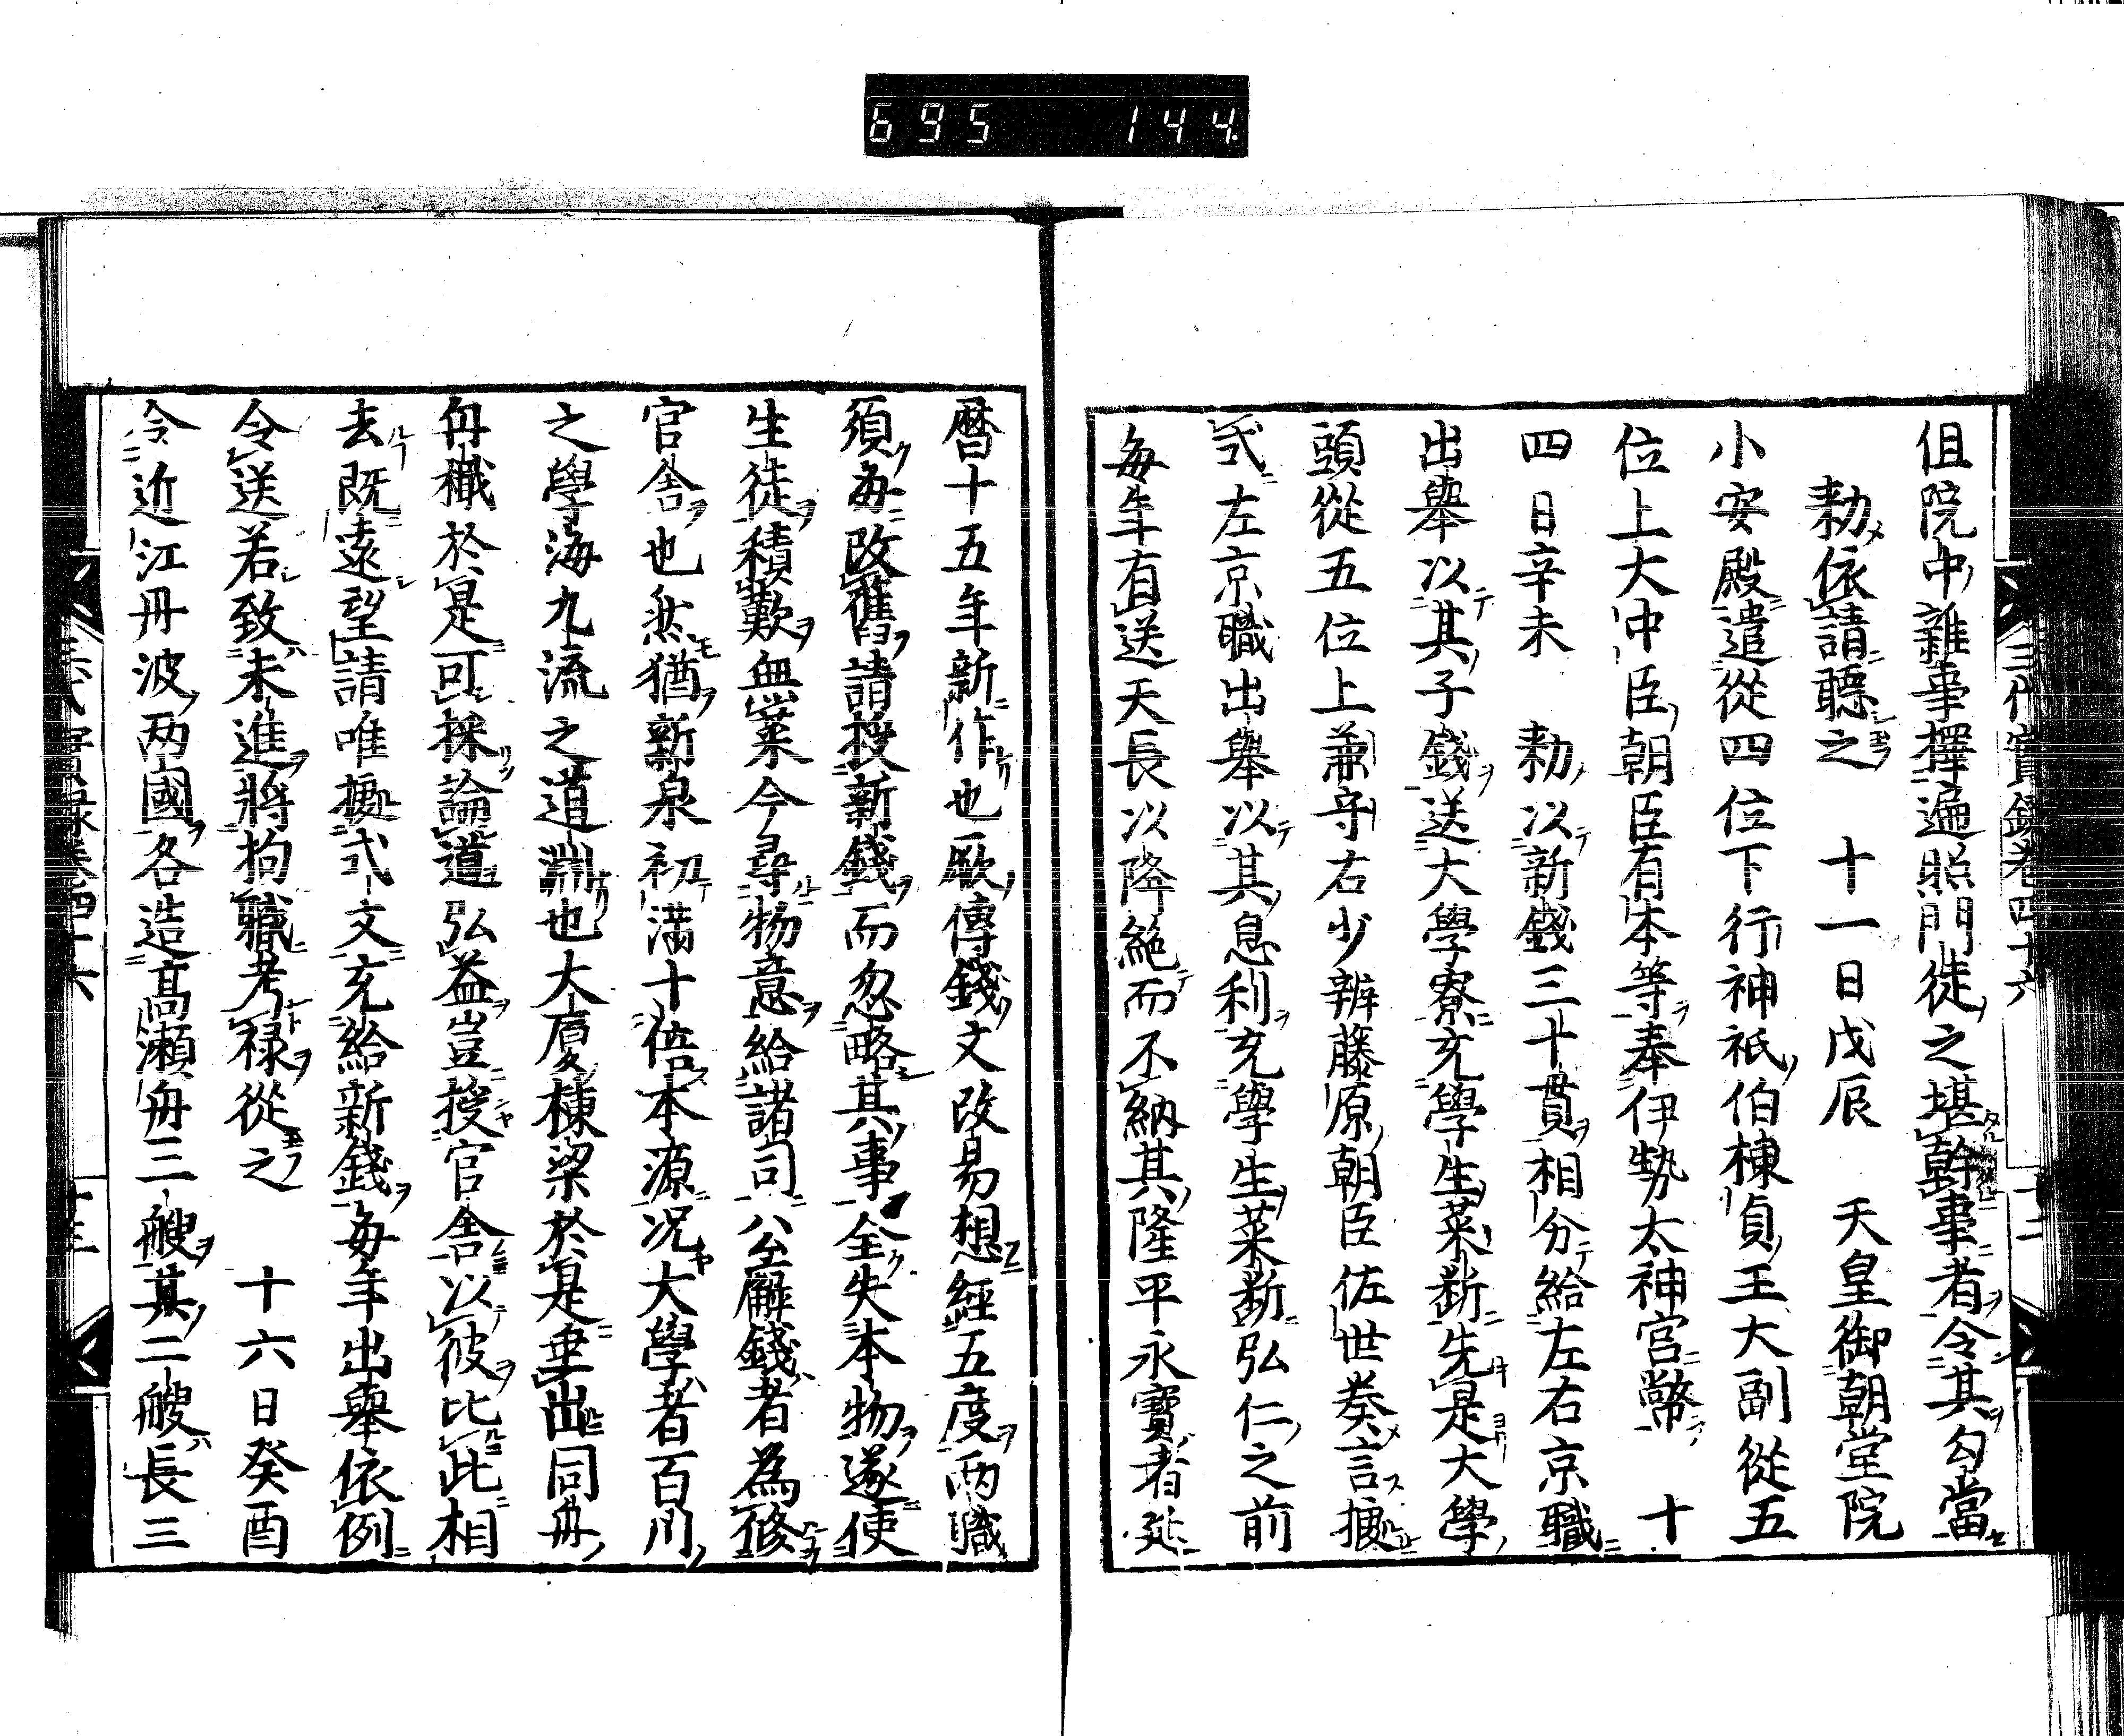 695 144
三代實錄卷四十六 十二
但院中雜事擇遍照門徒之堪幹事者令其勾當
勅依請聽之 十一日戊辰 天皇御朝堂院
小安殿遣從四位下行神祇伯棟貞王大副從五
位上大中臣朝臣有本等奉伊勢太神宮幣 十
四日辛未 勅以新錢三十貫相分給左右京職
出擧以其子錢送大學寮充學生菜斷先是大學
頭從五位上兼守右少辨藤原朝臣佐世奏言據
式左京職出擧以其息利充學生菜斷弘仁之前
每年有送天長以降絕而不納其隆平永寶者延
曆十五年新作也厥傳錢文改易想經五度兩職
須每改舊請授新錢而忽略其事全失本物遂使
生徒積歎無菜今尋物意給諸司公廨錢者為修
官舍也然猶新泉初滿十倍本源況大學者百川
之學海九流之道淵也大廈棟梁於是乎出同舟
舟檝於是可採論道弘益豈授官舍以彼比此相
去既遠望請唯據式文充給新錢每年出擧依例
令送若致未進將拘職考祿從之 十六日癸酉
令近江丹波兩國各造高瀨舟三艘其二艘長三
三代實錄卷四十六 十三